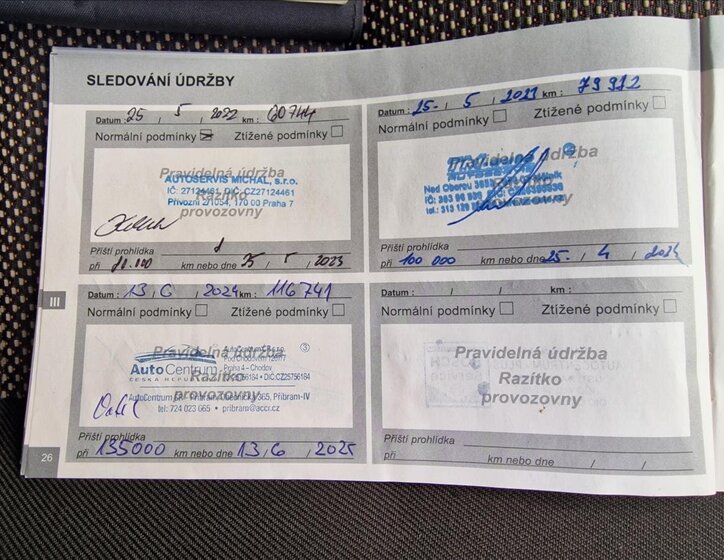 SLEDOVÁNÍ ÚDRŽBY
Datum : 25 / 5 / 2022 km : 60744
Normální podmínky Ztížené podmínky
Pravidelná údržba
AUTOSERVIS MICHAL, s.r.o.
IČ: 27124461, DIČ: CZ27124461
Razítko
Přívozní 2/1054, 170 00 Praha 7
provozovny
Příští prohlídka
při km nebo dne 25 / 5 / 2023
Datum : 25. / 5 / 2023 km : 79 912
Normální podmínky Ztížené podmínky
Pravidelná údržba
Razítko
provozovny
Příští prohlídka
při 100 000 km nebo dne 25. / 4 / 2024
III
Datum : 13 / 6 / 2024 km : 116741
Normální podmínky Ztížené podmínky
Pravidelná údržba
AutoCentrum
Praha 4 - Chodov
ČESKÁ
Razítko
provozovny
tel: 724 023 665 • pribram@accr.cz
Příští prohlídka
při 135000 km nebo dne 13 / 6 / 2025
Datum : / / km :
Normální podmínky Ztížené podmínky
Pravidelná údržba
Razítko
provozovny
Příští prohlídka
při km nebo dne / /
26